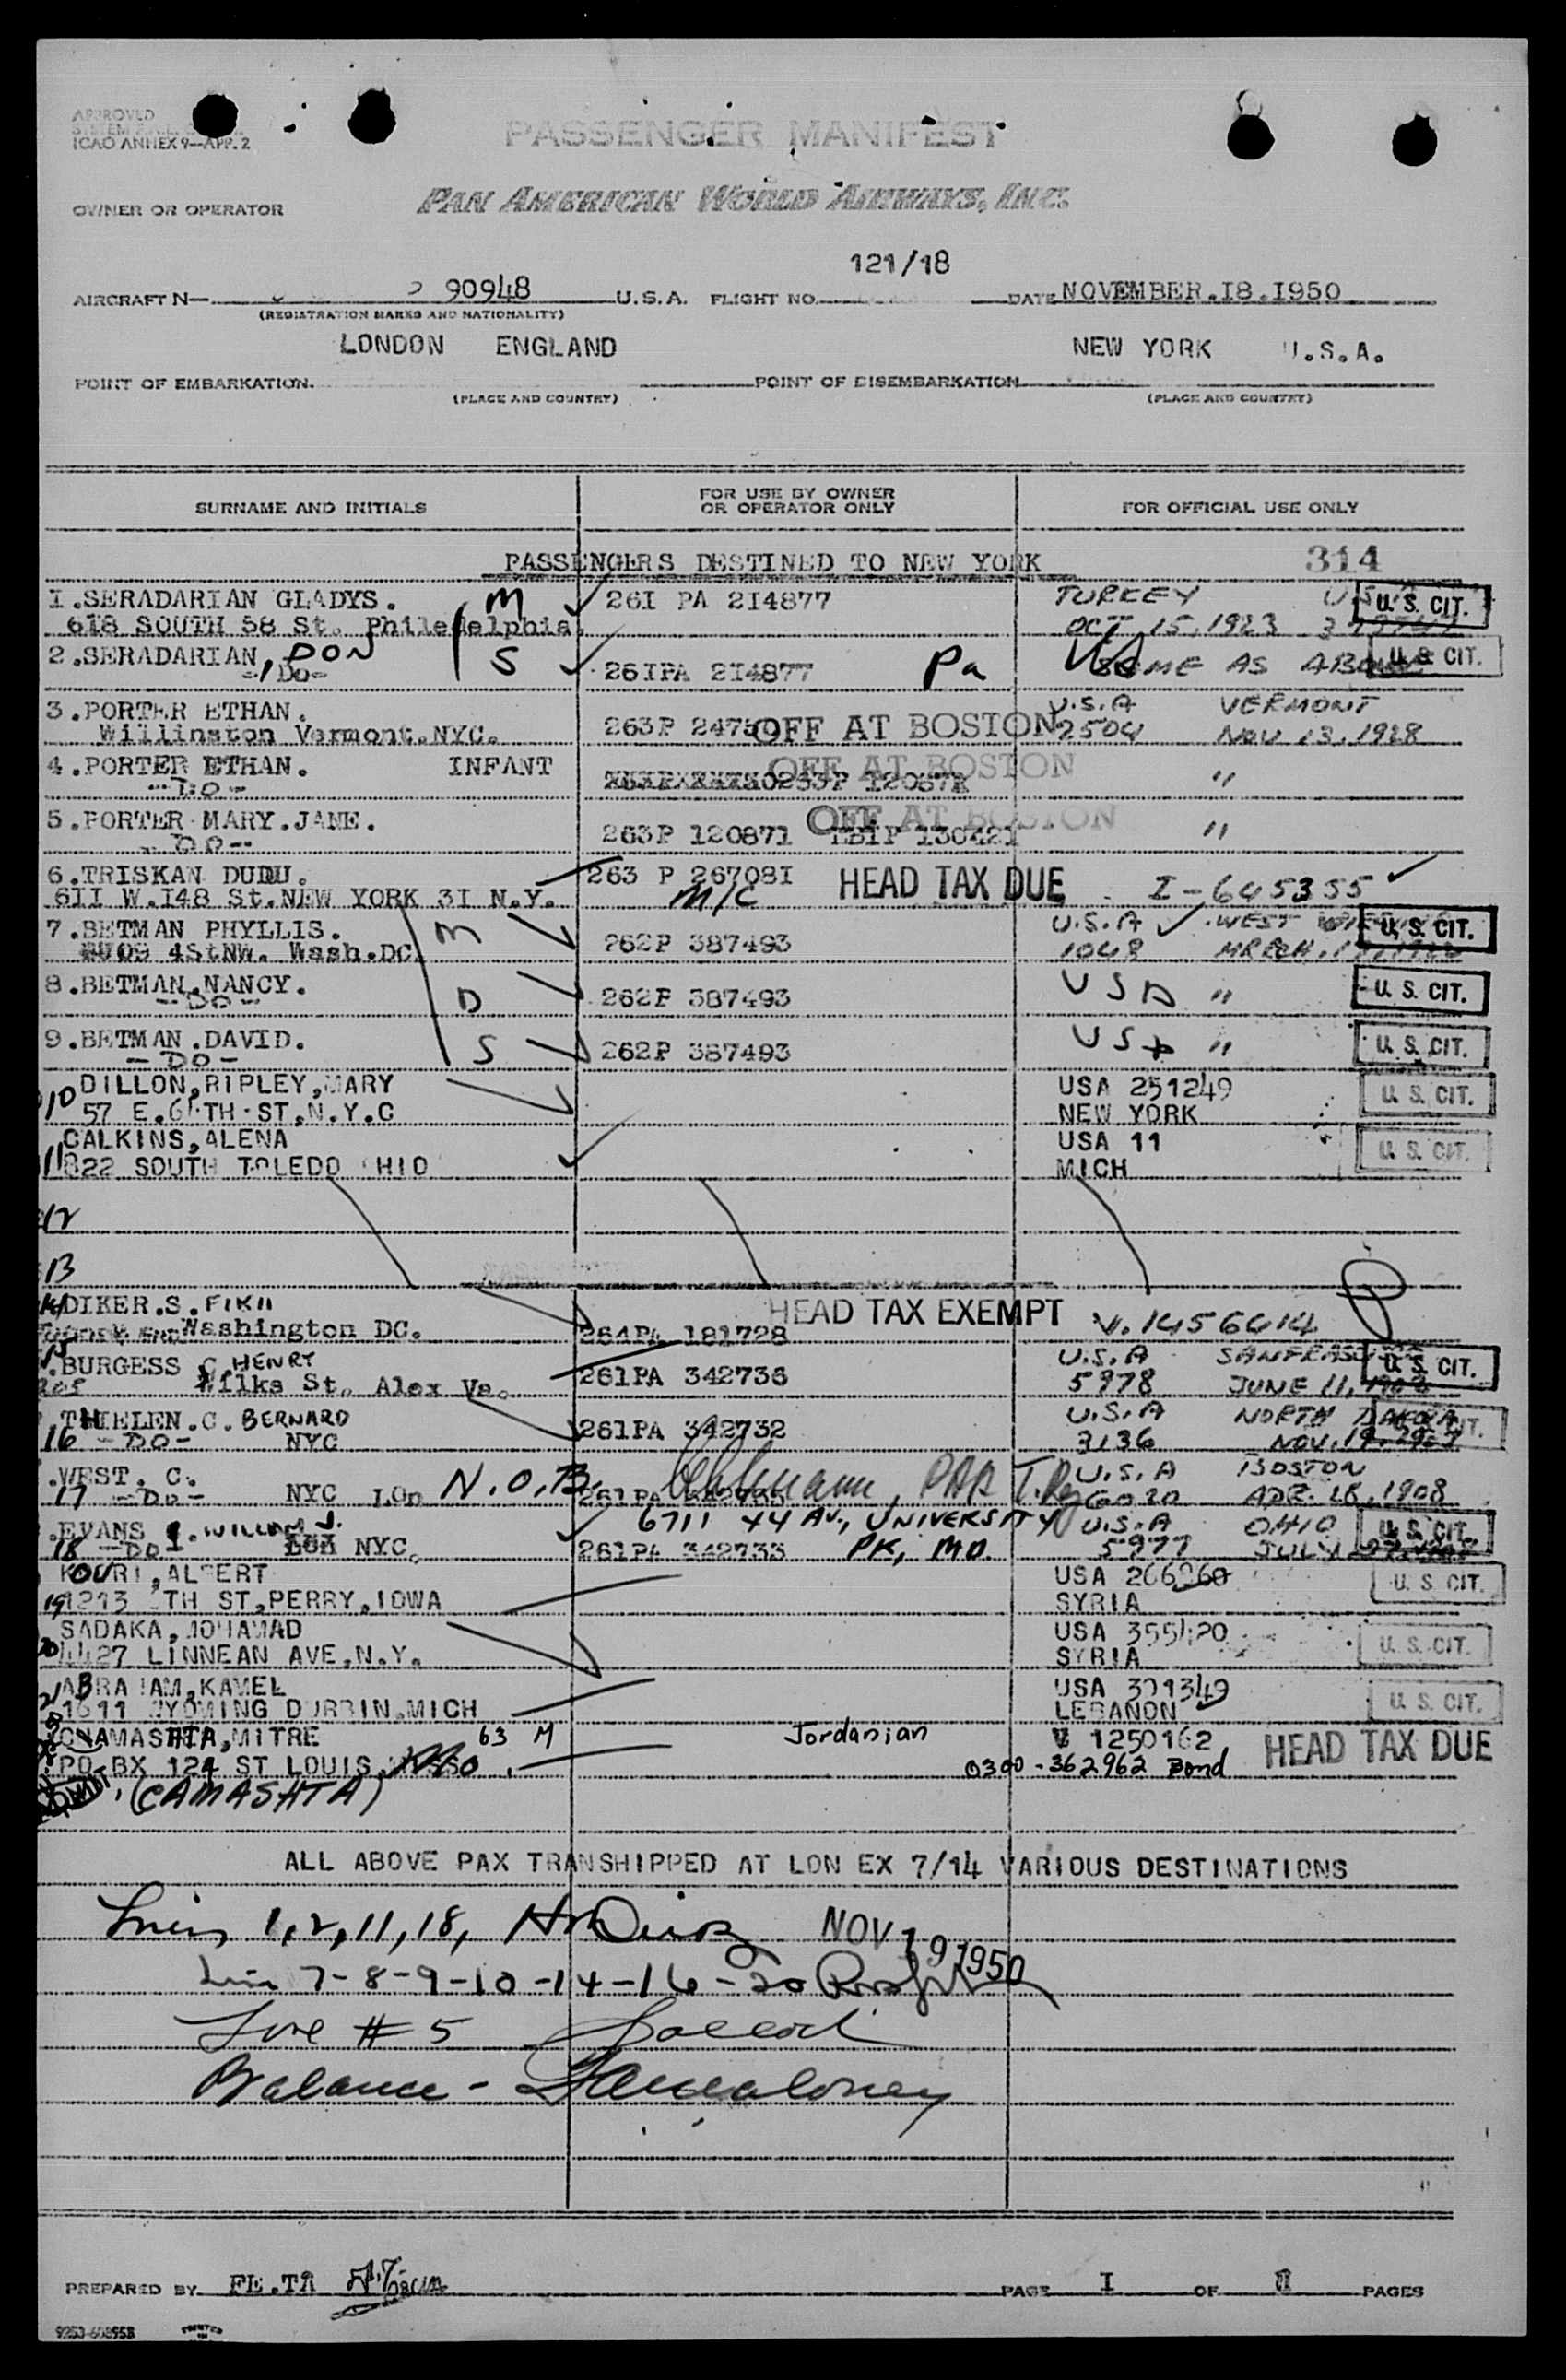 APPROVED
ICAO ANNEX 9—APP. 2
PASSENGER MANIFEST
OWNER OR OPERATOR
PAN AMERICAN WORLD AIRWAYS, INC.
121/18
AIRCRAFT N— 90948 U.S.A. FLIGHT NO. DATE NOVEMBER.I8.I950
(REGISTRATION MARKS AND NATIONALITY)
LONDON ENGLAND NEW YORK U.S.A.
POINT OF EMBARKATION. POINT OF DISEMBARKATION
(PLACE AND COUNTRY) (PLACE AND COUNTRY)
SURNAME AND INITIALS FOR USE BY OWNER OR OPERATOR ONLY FOR OFFICIAL USE ONLY
PASSENGERS DESTINED TO NEW YORK 314
I.SERADARIAN GLADYS. M 26I PA 2I4877 TURKEY U.S. CIT.
618 SOUTH 58 St. Philedelphia. OCT 15, 1923
2.SERADARIAN, DON S 26IPA 2I4877 Pa SAME AS ABOVE U.S. CIT.
-Do-
3.PORTER ETHAN. 263P OFF AT BOSTON U.S.A VERMONT
Willinston Vermont.NYC. 2504 NOV 13, 1928
4.PORTER ETHAN. INFANT OFF AT BOSTON "
-DO-
5.PORTER MARY.JANE. 263P 120871 OFF AT BOSTON "
-DO-
6.TRISKAN DUDU. 263 P 26708I HEAD TAX DUE I-645355
6II W.I48 St.NEW YORK 3I N.Y. M/C
7.BETMAN PHYLLIS. M 262P 387493 U.S.A WEST U. S. CIT.
09 4StNW. Wash.DC 1048 MARCH
8.BETMAN.NANCY. D 262P 387493 USA " U. S. CIT.
-DO-
9.BETMAN.DAVID. S 262P 387493 USA " U. S. CIT.
-DO-
10 DILLON,RIPLEY,MARY USA 251249 U. S. CIT.
57 E. TH ST,N.Y.C NEW YORK
11 CALKINS,ALENA USA 11 U. S. CIT.
822 SOUTH TOLEDO OHIO MICH
12
13
14 DIKER.S. FIKII HEAD TAX EXEMPT V.1456414
Washington DC. 264PA 181728
.BURGESS C. HENRY 261PA 342736 U.S.A U. S. CIT.
Wilks St. Alex Va. 5978 JUNE 11,
.THIELEN.C. BERNARD 261PA 342732 U.S.A NORTH DAKOTA
16 -DO- NYC 3136 NOV. 19,
.WEST. C. N.O.B. PAA U.S.A BOSTON
17 -Do- NYC LOn 6020 APR. 28, 1908
.EVANS WILLIAM J. 6711 44 AV., UNIVERSITY U.S.A OHIO U. S. CIT.
18 -DO- NYC. 261PA 342733 PK, MD. 5977 JULY
KOURI,ALBERT USA U. S. CIT.
19 1213 TH ST,PERRY,IOWA SYRIA
SADAKA,MOHAMAD USA 355420 U. S. CIT.
20 4427 LINNEAN AVE,N.Y. SYRIA
21 ABRAHAM,KAMEL USA U. S. CIT.
WYOMING MICH LEBANON
MITRE 63 M Jordanian V 1250162 HEAD TAX DUE
PO BX 124 ST LOUIS, MO. 0300-362962 Bond
(CAMASHTA)
ALL ABOVE PAX TRANSHIPPED AT LON EX 7/14 VARIOUS DESTINATIONS
Lines 1, 2, 11, 18, NOV 19 1950
Line 7-8-9-10-14-16-20
Line # 5
Balance -
PREPARED BY PAGE I OF PAGES